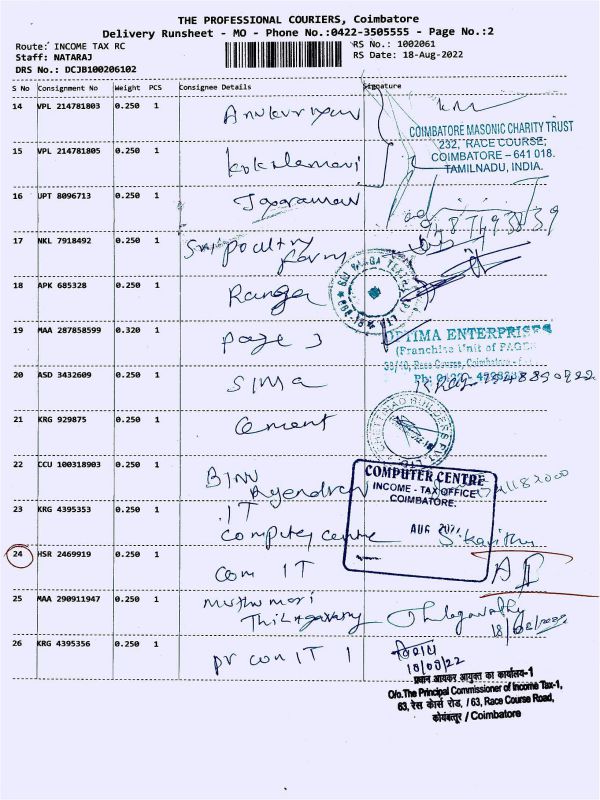 THE PROFESSIONAL COURIERS, Coimbatore
Delivery Runsheet - MO - Phone No.:0422-3505555 - Page No.:2
Route: INCOME TAX RC
RS No.: 1002061
Staff: NATARAJ
RS Date: 18-Aug-2022
DRS No.: DCJB100206102
S No Consignment No Weight PCS Consignee Details Signature
14 VPL 214781803 0.250 1
COIMBATORE MASONIC CHARITY TRUST
232, RACE COURSE,
COIMBATORE – 641 018.
TAMILNADU, INDIA.
15 VPL 214781805 0.250 1 kokilamani
16 UPT 8096713 0.250 1 Jayaraman
17 NKL 7918492 0.250 1 poultry
farm
18 APK 685328 0.250 1 Ranga
19 MAA 287858599 0.320 1 page 3
OPTIMA ENTERPRISES
(Franchise Unit of PAGE
38/10, Race Course, Coimbatore
20 ASD 3432609 0.250 1 SIMA
21 KRG 929875 0.250 1 Cement
22 CCU 100318903 0.250 1 BINU
Rajendren
COMPUTER CENTRE
INCOME - TAX OFFICE
COIMBATORE.
23 KRG 4395353 0.250 1 IT
computer centre
AUG 2022
S. Kavitha
24 HSR 2469919 0.250 1 com IT
25 MAA 290911947 0.250 1 muthumari
Thilagavathy
Thilagavathy
18/08/2022
26 KRG 4395356 0.250 1 pr con IT 1
18/08/22
प्रधान आयकर आयुक्त का कार्यालय-1
O/o.The Principal Commissioner of Income Tax-1,
63, रेस कोर्स रोड, / 63, Race Course Road,
कोयंबत्तूर / Coimbatore